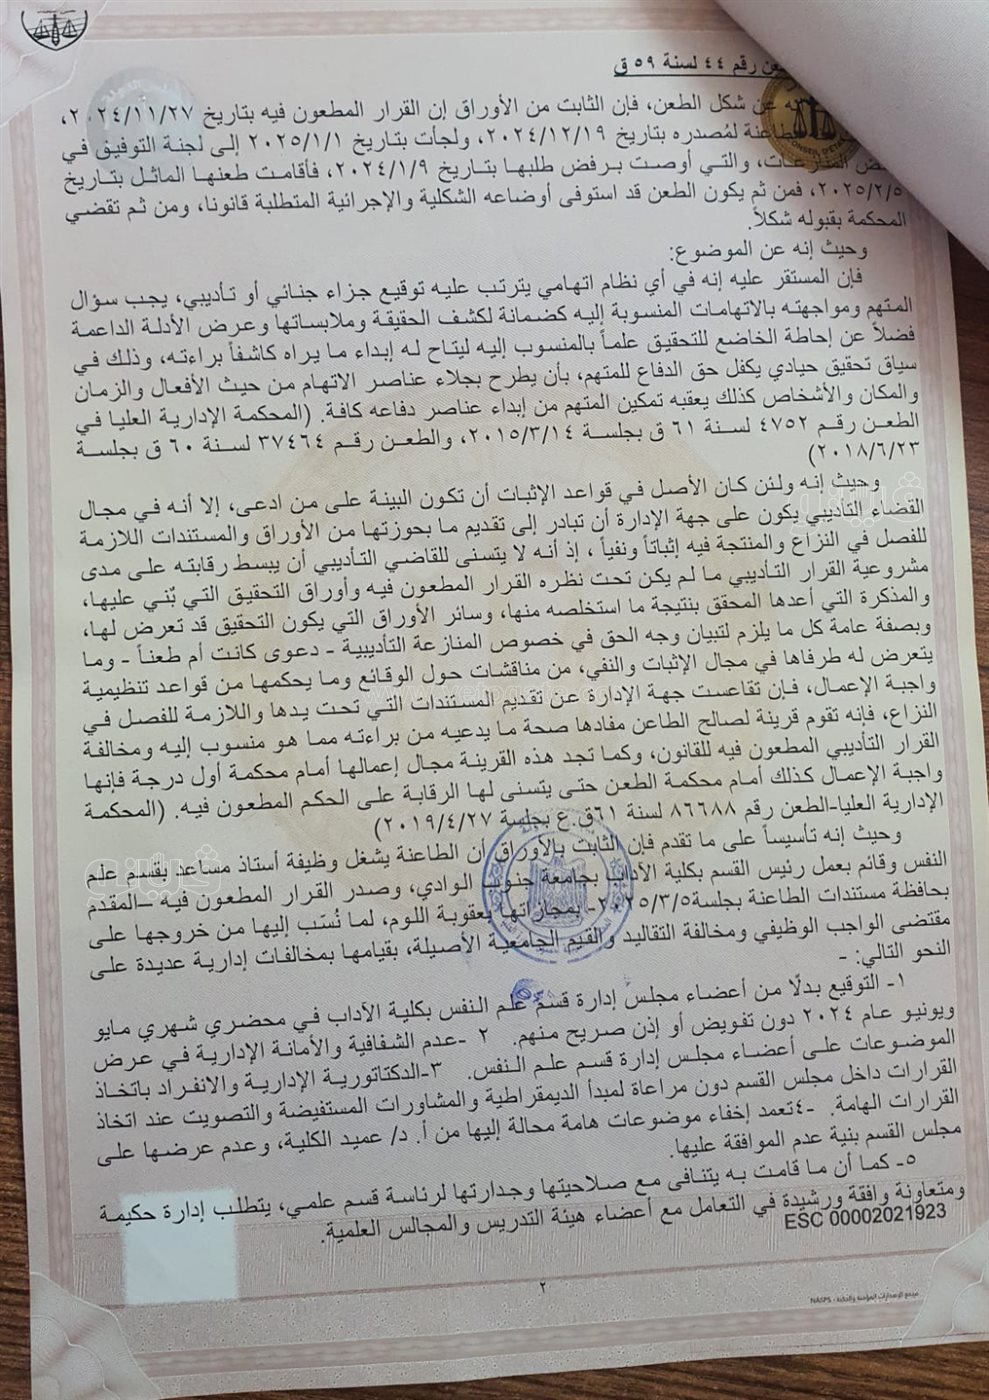 طعن رقم ٤٤ لسنة ٥٩ ق
عن شكل الطعن، فإن الثابت من الأوراق إن القرار المطعون فيه بتاريخ ٢٠٢٤/١١/٢٧،
الطاعنة لمُصدره بتاريخ ٢٠٢٤/١٢/١٩، ولجأت بتاريخ ٢٠٢٥/١/١ إلى لجنة التوفيق في
بعض المنازعات، والتي أوصت برفض طلبها بتاريخ ٢٠٢٤/١/٩، فأقامت طعنها الماثل بتاريخ
٢٠٢٥/٢/٥، فمن ثم يكون الطعن قد استوفى أوضاعه الشكلية والإجرائية المتطلبة قانونا، ومن ثم تقضي
المحكمة بقبوله شكلاً.
وحيث إنه عن الموضوع:
فإن المستقر عليه إنه في أي نظام اتهامي يترتب عليه توقيع جزاء جنائي أو تأديبي، يجب سؤال
المتهم ومواجهته بالاتهامات المنسوبة إليه كضمانة لكشف الحقيقة وملابساتها وعرض الأدلة الداعمة
فضلاً عن إحاطة الخاضع للتحقيق علماً بالمنسوب إليه ليتاح له إبداء ما يراه كاشفاً براءته، وذلك في
سياق تحقيق حيادي يكفل حق الدفاع للمتهم، بأن يطرح بجلاء عناصر الاتهام من حيث الأفعال والزمان
والمكان والأشخاص كذلك يعقبه تمكين المتهم من إبداء عناصر دفاعه كافة. (المحكمة الإدارية العليا في
الطعن رقم ٤٧٥٢ لسنة ٦١ ق بجلسة ٢٠١٥/٣/١٤، والطعن رقم ٣٧٤٦٤ لسنة ٦٠ ق بجلسة
٢٠١٨/٦/٢٣)
وحيث إنه ولئن كان الأصل في قواعد الإثبات أن تكون البينة على من ادعى، إلا أنه في مجال
القضاء التأديبي يكون على جهة الإدارة أن تبادر إلى تقديم ما بحوزتها من الأوراق والمستندات اللازمة
للفصل في النزاع والمنتجة فيه إثباتاً ونفياً، إذ أنه لا يتسنى للقاضي التأديبي أن يبسط رقابته على مدى
مشروعية القرار التأديبي ما لم يكن تحت نظره القرار المطعون فيه وأوراق التحقيق التي بُني عليها،
والمذكرة التي أعدها المحقق بنتيجة ما استخلصه منها، وسائر الأوراق التي يكون التحقيق قد تعرض لها،
وبصفة عامة كل ما يلزم لتبيان وجه الحق في خصوص المنازعة التأديبية - دعوى كانت أم طعناً - وما
يتعرض له طرفاها في مجال الإثبات والنفي، من مناقشات حول الوقائع وما يحكمها من قواعد تنظيمية
واجبة الإعمال، فإن تقاعست جهة الإدارة عن تقديم المستندات التي تحت يدها واللازمة للفصل في
النزاع، فإنه تقوم قرينة لصالح الطاعن مفادها صحة ما يدعيه من براءته مما هو منسوب إليه ومخالفة
القرار التأديبي المطعون فيه للقانون، وكما تجد هذه القرينة مجال إعمالها أمام محكمة أول درجة فإنها
واجبة الإعمال كذلك أمام محكمة الطعن حتى يتسنى لها الرقابة على الحكم المطعون فيه. (المحكمة
الإدارية العليا-الطعن رقم ٨٦٦٨٨ لسنة ٦١ق.ع بجلسة ٢٠١٩/٤/٢٧)
وحيث إنه تأسيساً على ما تقدم فإن الثابت بالأوراق أن الطاعنة يشغل وظيفة أستاذ مساعد بقسم علم
النفس وقائم بعمل رئيس القسم بكلية الآداب بجامعة جنوب الوادي، وصدر القرار المطعون فيه -المقدم
بحافظة مستندات الطاعنة بجلسة٢٠٢٥/٣/٥- بمجازاتها بعقوبة اللوم، لما نُسب إليها من خروجها على
مقتضى الواجب الوظيفي ومخالفة التقاليد والقيم الجامعية الأصيلة، بقيامها بمخالفات إدارية عديدة على
النحو التالي: -
١- التوقيع بدلًا من أعضاء مجلس إدارة قسم علم النفس بكلية الآداب في محضري شهري مايو
ويونيو عام ٢٠٢٤ دون تفويض أو إذن صريح منهم. ٢ -عدم الشفافية والأمانة الإدارية في عرض
الموضوعات على أعضاء مجلس إدارة قسم علم النفس. ٣-الدكتاتورية الإدارية والانفراد باتخاذ
القرارات داخل مجلس القسم دون مراعاة لمبدأ الديمقراطية والمشاورات المستفيضة والتصويت عند اتخاذ
القرارات الهامة. ٤-تعمد إخفاء موضوعات هامة محالة إليها من أ. د/ عميد الكلية، وعدم عرضها على
مجلس القسم بنية عدم الموافقة عليها.
٥- كما أن ما قامت به يتنافى مع صلاحيتها وجدارتها لرئاسة قسم علمي، يتطلب إدارة حكيمة
ومتعاونة وافقة ورشيدة في التعامل مع أعضاء هيئة التدريس والمجالس العلمية.
ESC 00002021923
٢
مجمع الإصدارات المؤمنة والذكية - NASPS